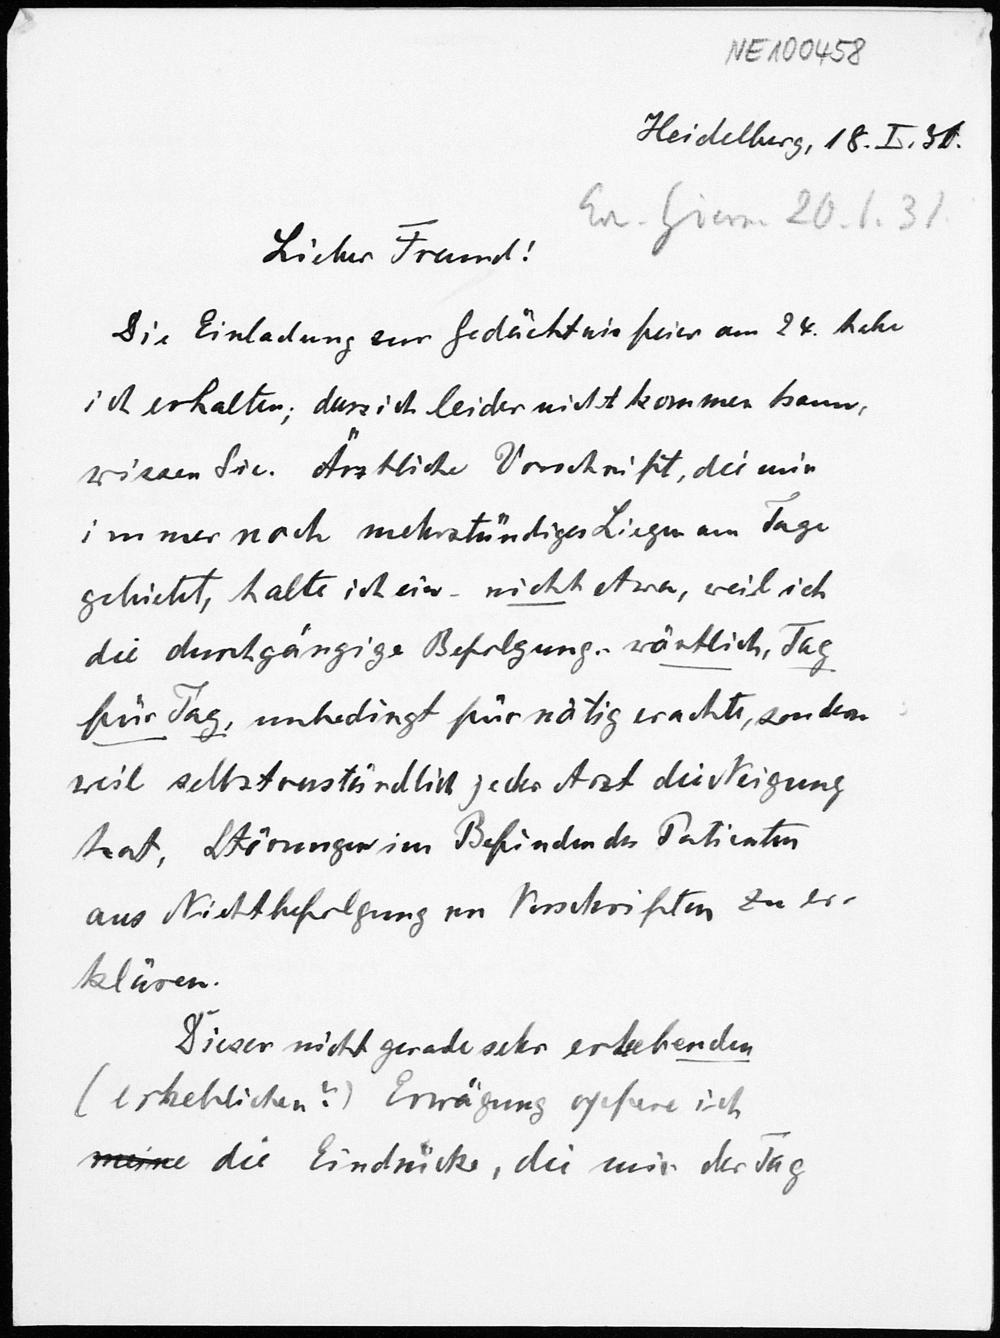 NE100458
Heidelberg, 18. I. 31.
20. 1. 31
Lieber Freund!
Die Einladung zur Gedächtnisfeier am 24. habe
ich erhalten; dass ich leider nicht kommen kann,
wissen Sie. Ärztliche Vorschrift, die mir
immer noch mehrstündiges Liegen am Tage
gebietet, halte ich ein - nicht etwa, weil ich
die durchgängige Befolgung - wörtlich, Tag
für Tag, unbedingt für nötig erachte, sondern
weil selbstverständlich jeder Arzt die Neigung
hat, Störungen im Befinden des Patienten
aus Nichtbefolgung von Vorschriften zu er-
klären.
Dieser nicht gerade sehr erhebenden
(erheblichen?) Erwägung opfere ich
meine die Eindrücke, die mir der Tag